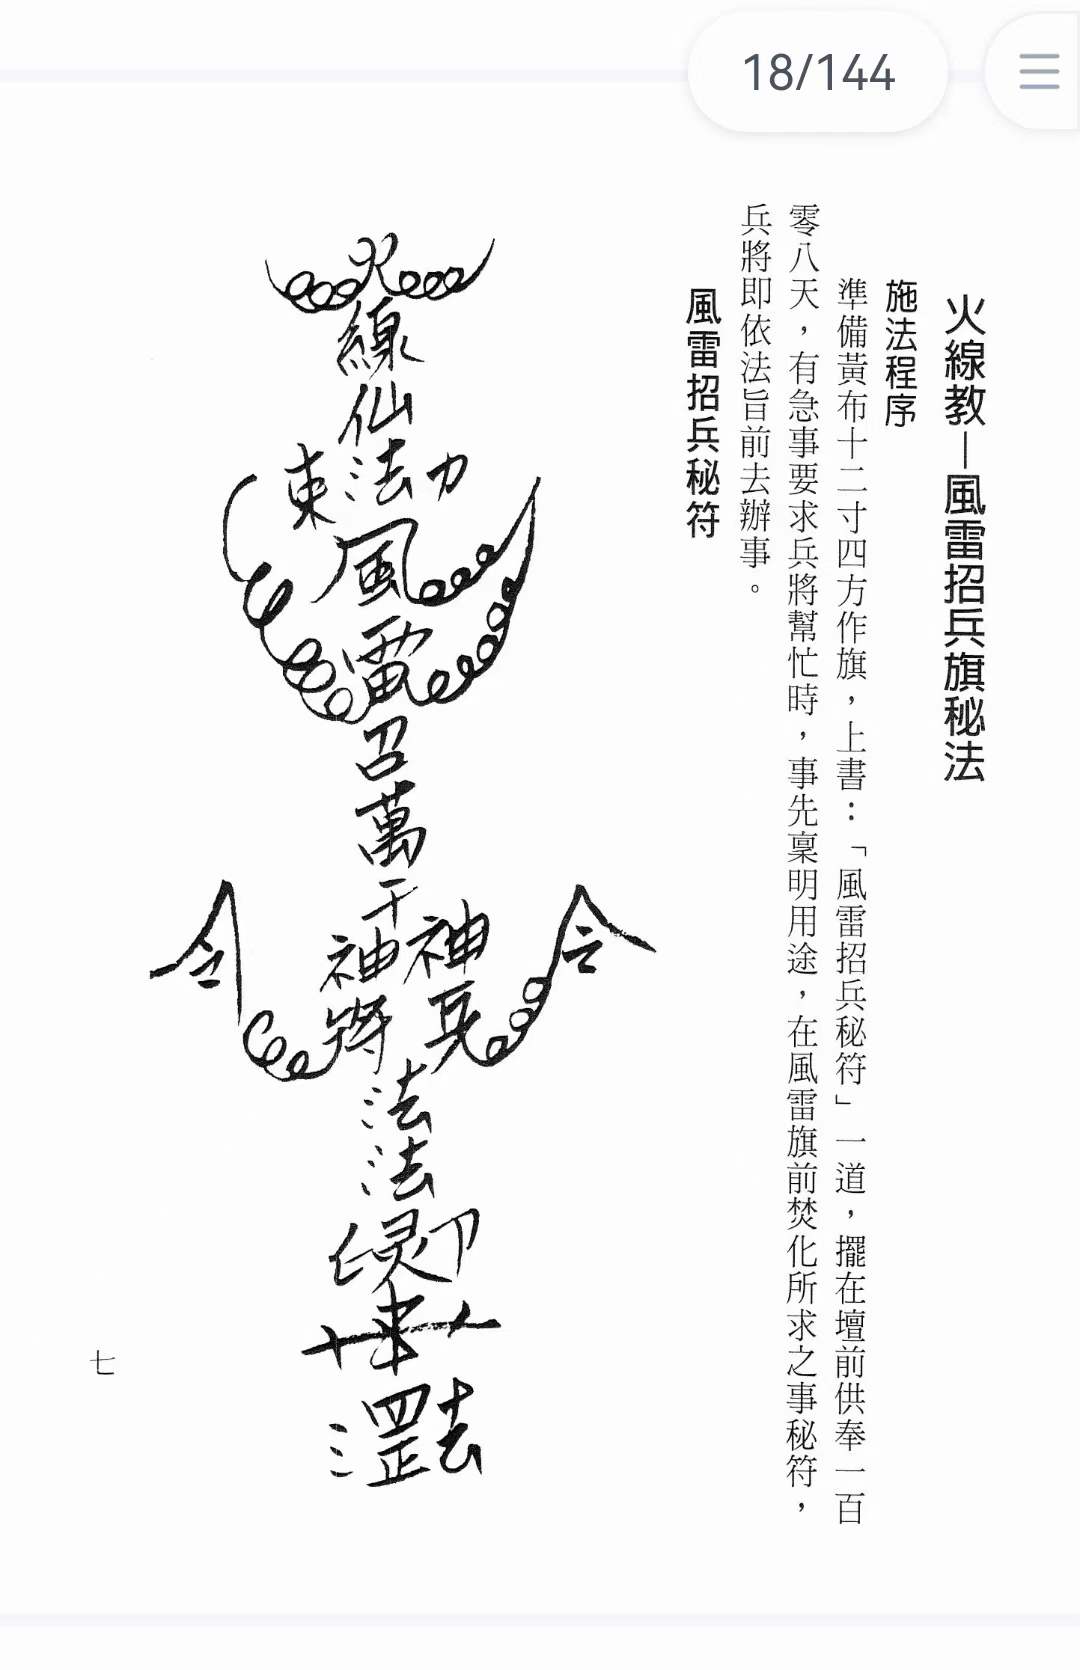 18/144
火線教—風雷招兵旗秘法
施法程序
準備黃布十二寸四方作旗，上書：「風雷招兵秘符」一道，擺在壇前供奉一百
零八天，有急事要求兵將幫忙時，事先稟明用途，在風雷旗前焚化所求之事秘符，
兵將即依法旨前去辦事。
風雷招兵秘符
火線仙法力
東
風雷召萬千
神兵
神將
令
令
法法
七